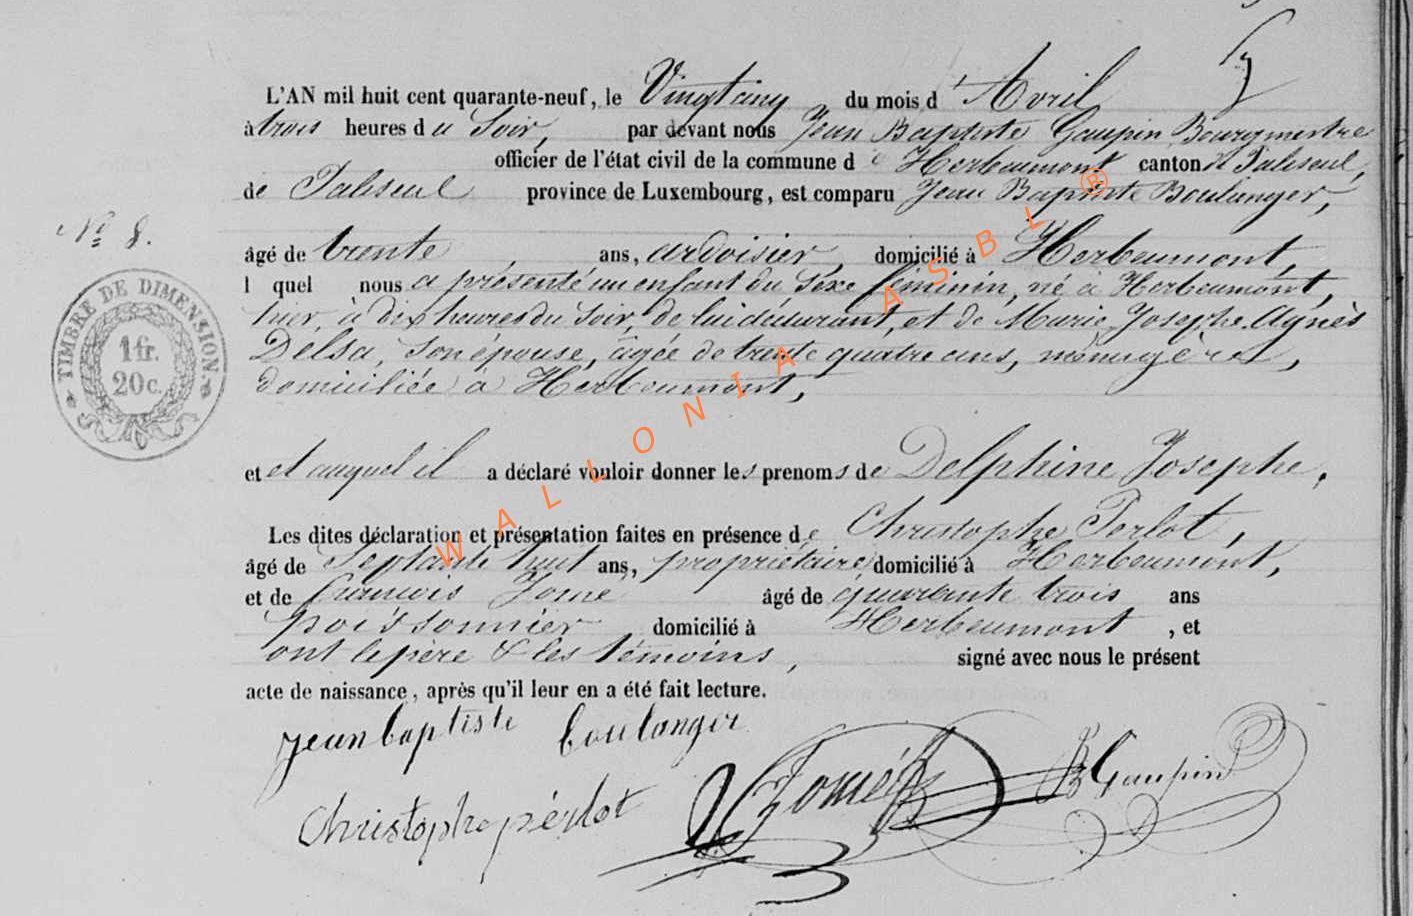 L'AN mil huit cent quarante-neuf, le Vingt cinq du mois d'Avril
à trois heures du Soir, par devant nous Jean Baptiste Gaupin Bourgmestre
officier de l'état civil de la commune de Herbeumont canton de Paliseul,
de Paliseul province de Luxembourg, est comparu Jean Baptiste Boulanger,
N° 8.
âgé de trente ans, ardoisier domicilié à Herbeumont,
l quel nous a présenté un enfant du Sexe féminin, né à Herbeumont,
hier, à dix heures du Soir, de lui déclarant, et de Marie Josephe Agnès
Delsa, son épouse, âgée de trente quatre ans, ménagère,
domiciliée à Herbeumont,
TIMBRE DE DIMENSION
1 fr.
20 c.
et et auquel il a déclaré vouloir donner les prenoms de Delphine Josephe,
Les dites déclaration et présentation faites en présence de Christophe Perlot,
âgé de Septante huit ans, propriétaire domicilié à Herbeumont,
et de francois Jomé âgé de quarante trois ans
poissonnier domicilié à Herbeumont, et
ont le père & les témoins, signé avec nous le présent
acte de naissance, après qu'il leur en a été fait lecture.
jean baptiste boulanger
Christophe pérlot Jomé JB Gaupin
WALLONIA ASBL ®